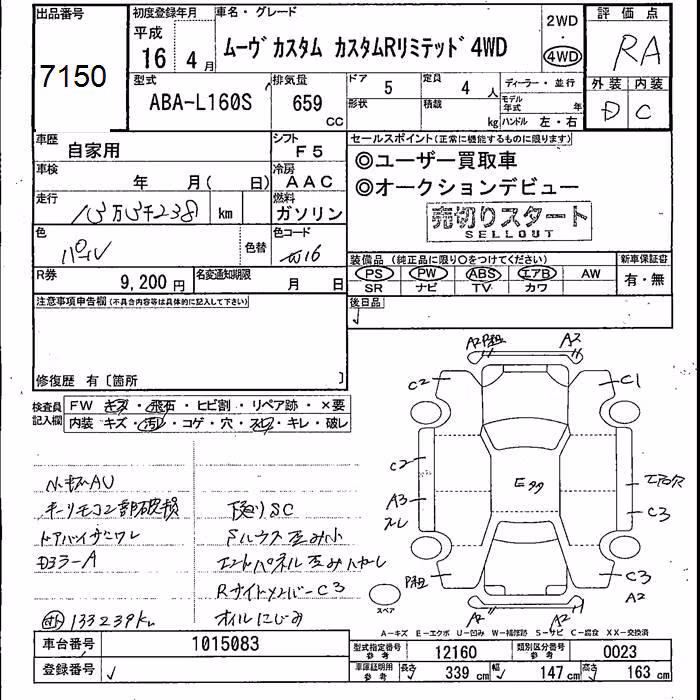 出品番号
7150
初度登録年月
平成
16年 4月
車名・グレード
ムーヴ カスタム カスタムRリミテッド 4WD
2WD
・
4WD
評価点
RA
外装 内装
D C
型式
ABA-L160S
排気量
659 CC
ドア 5
形状
定員 4 人
積載 kg
ディーラー・並行
モデル年式 年
ハンドル 左・右
車歴
自家用
シフト
F5
車検
年 月( 日)
冷房
AAC
走行
13万3千238 km
燃料
ガソリン
色
パール
色替
色コード
W16
R券
9,200 円
名変通知期限
月 日
セールスポイント(正常に機能するものに限ります)
◎ユーザー買取車
◎オークションデビュー
売切りスタート
SELLOUT
装備品 (純正品に限り○をつけてください)
PS PW ABS エアB AW
SR ナビ TV カワ
新車保証書
有・無
後日品
注意事項申告欄(不具合内容等は具体的に記入して下さい)
修復歴 有〔箇所 〕
検査員記入欄
FW キズ・飛石・ヒビ割・リペア跡・×要
内装 キズ・汚レ・コゲ・穴・スレ・キレ・破レ
キーリモコン一部破損
ドアバイザーワレ
Dミラー A
133239km
下廻りSC
Fハウス歪み小
エンドパネル歪みハガレ
RサイドメンバーC3
オイルにじみ
A2 P粗 A2
C2 C1
C2
A3
スレ
エアロ欠
C3
P粗 C3
A2
A2 A2
スペア
A-キズ E-エクボ U-凹み W-補修跡 S-サビ C-腐食 XX-交換済
車台番号
1015083
登録番号
型式指定番号 参考
12160
類別区分番号 参考
0023
車庫証明用 参考
長さ 339 cm
幅 147 cm
高さ 163 cm